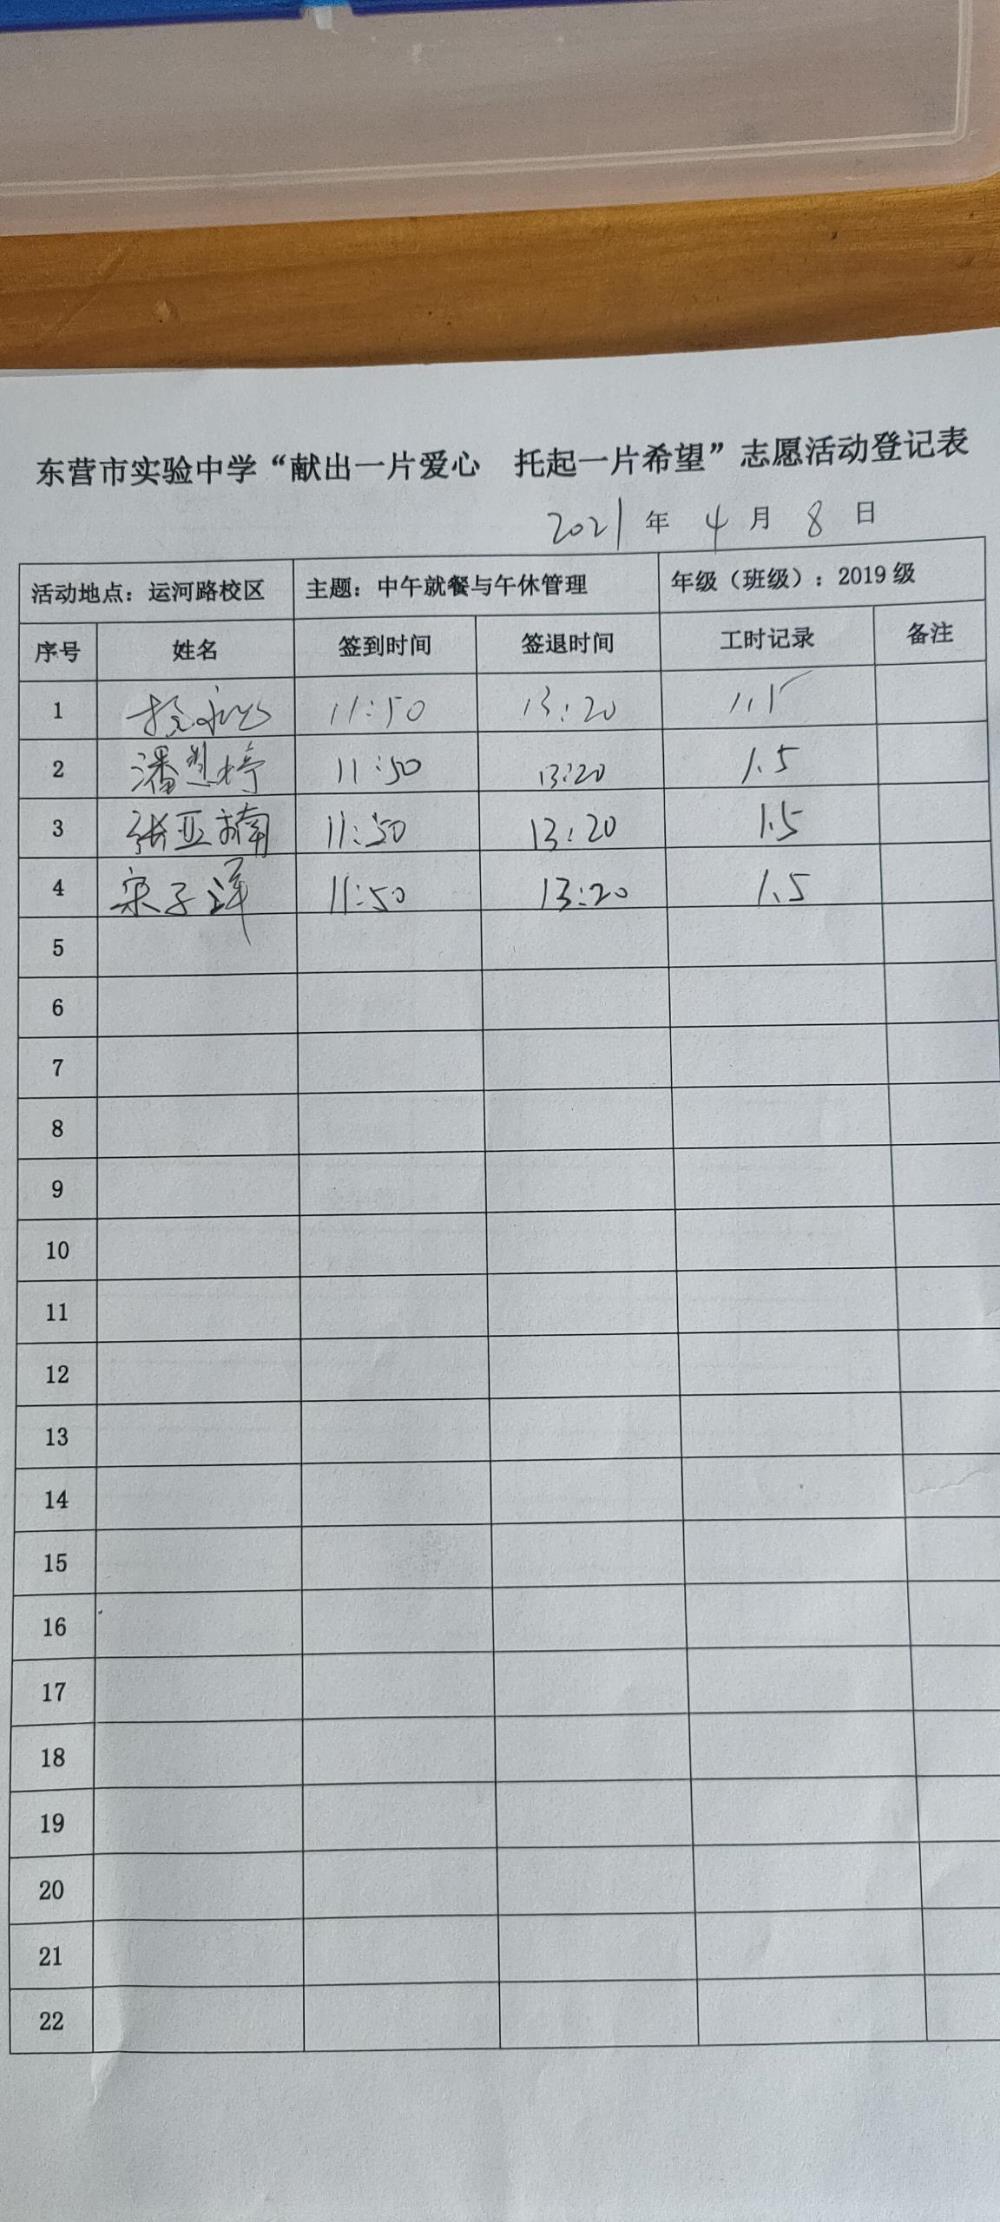 东营市实验中学“献出一片爱心 托起一片希望”志愿活动登记表
2021年 4月 8日
活动地点：运河路校区 主题：中午就餐与午休管理 年级（班级）：2019级
序号 姓名 签到时间 签退时间 工时记录 备注
1 11:50 13:20 1.5
2 潘 婷 11:50 13:20 1.5
3 张亚楠 11:50 13:20 1.5
4 宋子洋 11:50 13:20 1.5
5
6
7
8
9
10
11
12
13
14
15
16
17
18
19
20
21
22